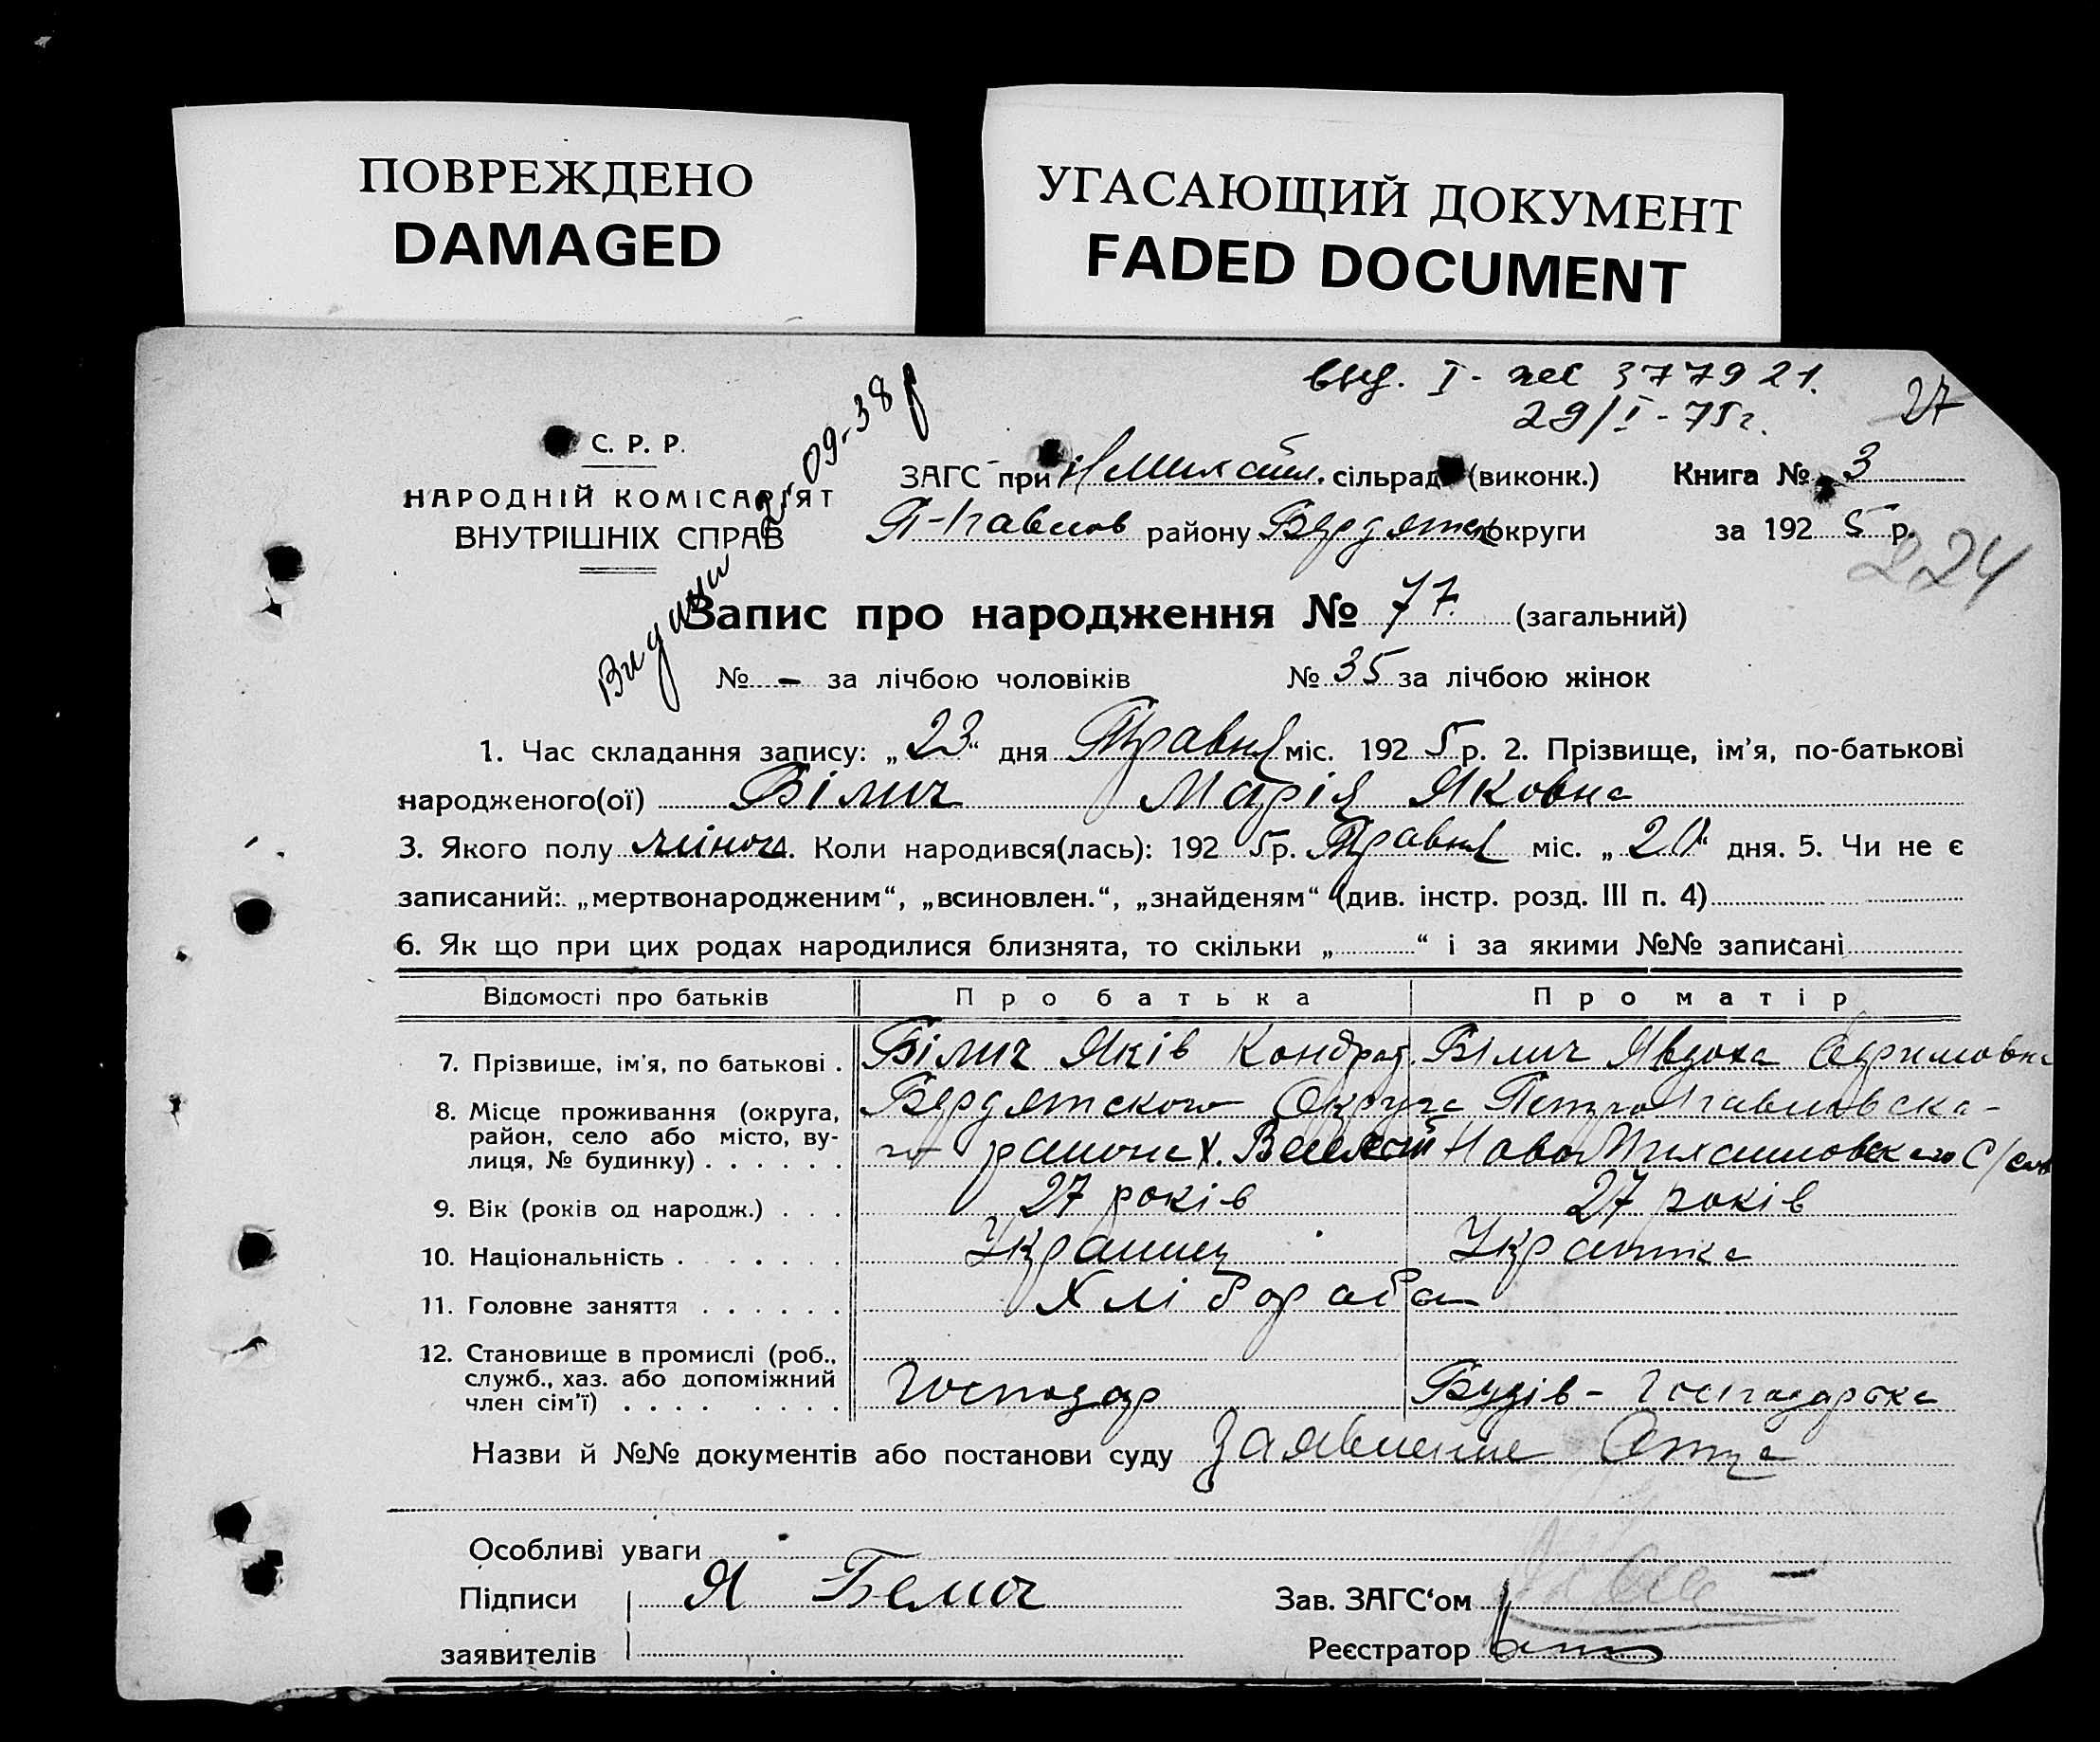 ПОВРЕЖДЕНО
DAMAGED
УГАСАЮЩИЙ ДОКУМЕНТ
FADED DOCUMENT
выд. I-
377921.
29/I-75г.
27
С. Р. Р.
НАРОДНІЙ КОМІСАРІЯТ
ВНУТРІШНІХ СПРАВ
Видани 09-38
ЗАГС при Н Михайл. сільрад (виконк.) Книга № 3
П-Павлов району Бердянськ округи за 192 5 р.
224
Запис про народження № 77. (загальний)
№ - за лічбою чоловіків № 35 за лічбою жінок
1. Час складання запису: „23“ дня Травня міс. 192 5 р. 2. Прізвище, ім’я, по-батькові
народженого(ої) Білич Марія Яковна
3. Якого полу жіноч. Коли народився(лась): 192 5 р. Травня міс. „20“ дня. 5. Чи не є
записаний: „мертвонародженим“, „всиновлен.“, „знайденям“ (див. інстр. розд. III п. 4)
6. Як що при цих родах народилися близнята, то скільки „ “ і за якими №№ записані
Відомості про батьків Про батька Про матір
7. Прізвище, ім’я, по батькові . Білич Яків Кондрат. Білич Явдоха
8. Місце проживання (округа, район, село або місто, вулиця, № будинку) . . . . . . Бердянского Округа Петропавловска-
го района х. Веселий Ново Михайловского С/сов
9. Вік (років од народж.) . . . 27 років 27 років
10. Національність . . . . . . Українец Українка
11. Головне заняття . . . . . . Хлібораба
12. Становище в промислі (роб., служб., хаз. або допоміжний член сім’ї) . . . . . . . . Господар Будів- Господарска
Назви й №№ документів або постанови суду Заявление Отца
Особливі уваги
Підписи Я Белич Зав. ЗАГС‘ом
заявителів Реєстратор